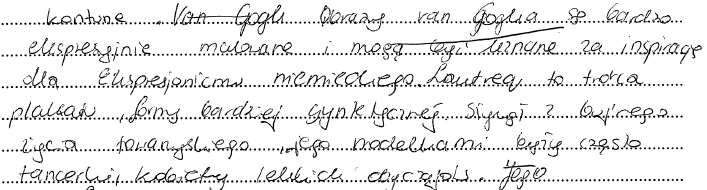 konturze. Van Gogh Obrazy van Gogha są bardzo
ekspresyjnie malowane i mogą być uznane za inspirację
dla ekspresjonizmu niemieckiego. Lautrec to twórca
plakatu, formy bardziej syntetycznej. Słynął z bujnego
życia towarzyskiego, jego modelkami były często
tancerki, kobiety lekkich obyczajów. Jego